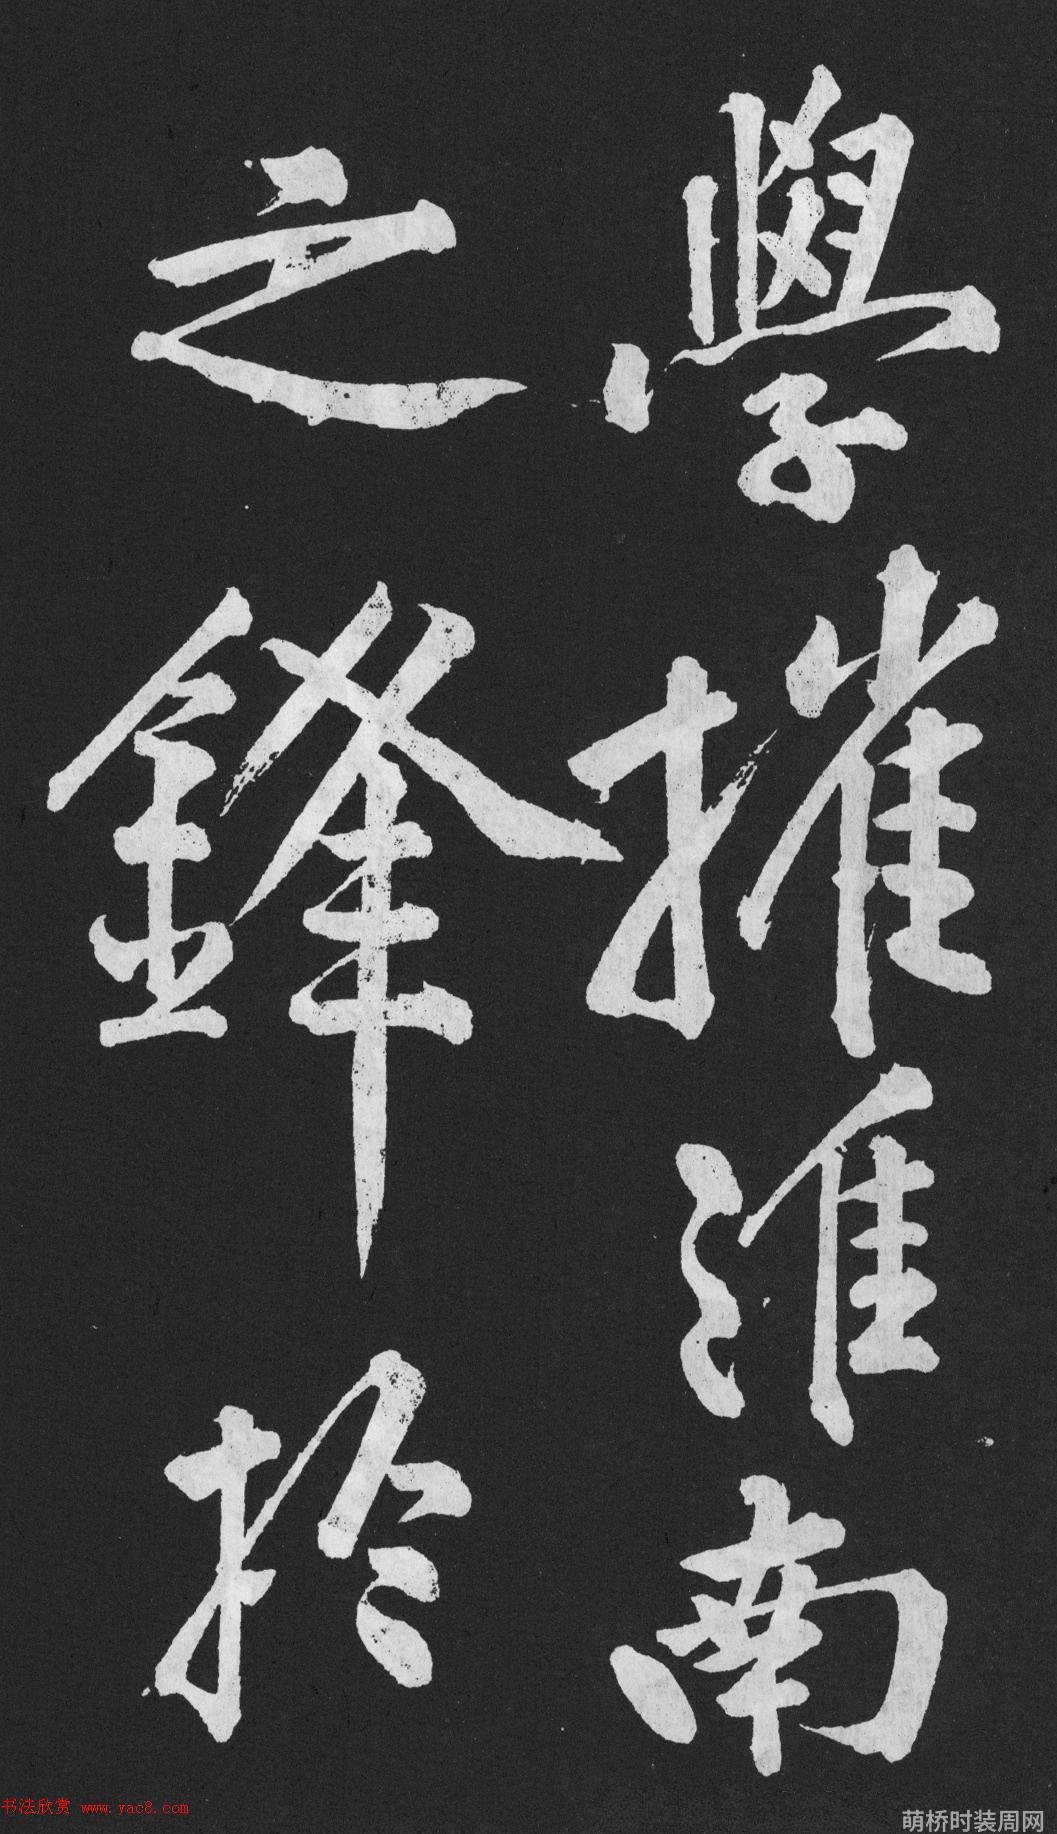 學摧淮南
之鋒於
书法欣赏 www.yac8.com
萌桥时装周网